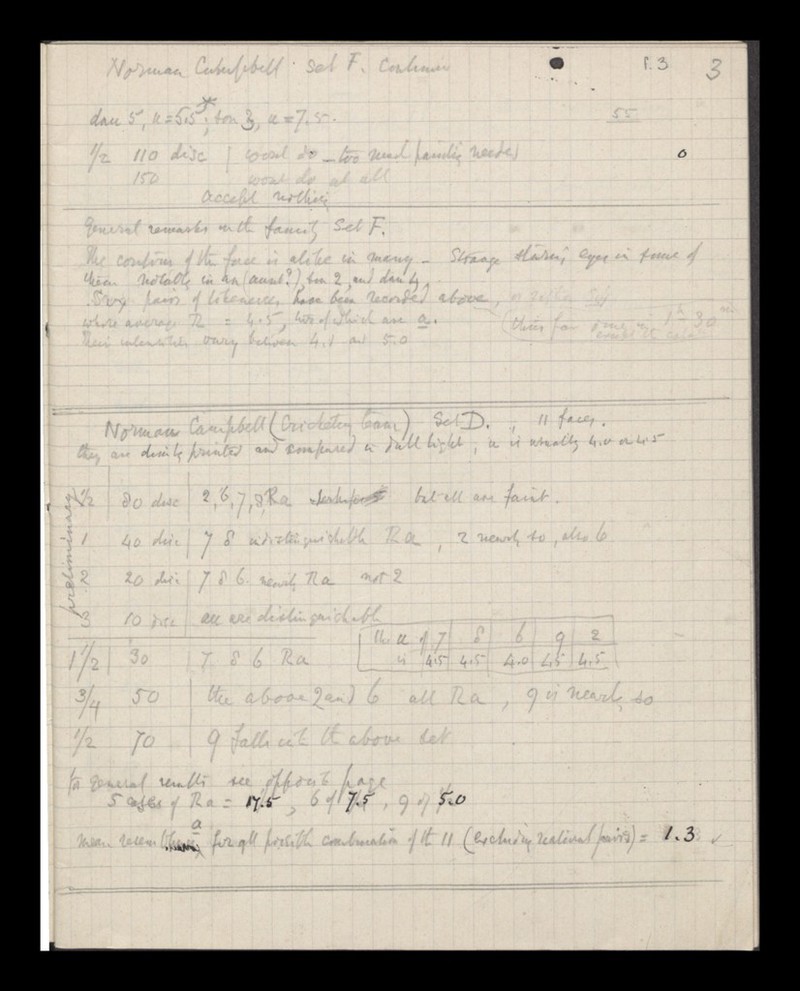 Norman Campbell Set F. Continued 1.3 3
dau 5, u=5.5*, son 3, u=7.5. 55
1/2 110 disc wont do – too much painting needed 0
150 wont do at all
accept nothing
General remarks on the family Set F.
The contour of the face is alike in many – Strange staring eyes in some of
them notably in an (aunt?), son 2, and dau 4,
pairs of likenesses have been recorded above,
whose average R = 4.5, two of which are a.
Their intensities vary between 4.1 and 5.0
Norman Campbell (Cricketing team) Set D., 11 faces.
they are dimly printed and compared in dull light, u is usually 4.0 or 4.5
preliminary
1/2 80 disc 2, 6, 7, 8, Ra but all are faint.
1 40 disc 7 8 indistinguishable Ra, 2 nearly so, also 6
2 20 disc 7 8 6 nearly Ra not 2
3 10 disc all are distinguishable
The u of 7 8 6 9 2
is 4.5 4.5 4.0 4.5 4.5
1 1/2 30 7 8 6 Ra
3/4 50 the above 2 and 6 all Ra, 9 is nearly so
1/2 70 9 falls into the above set
for general results see opposite page
5 cases of Ra = 17.5, 6 of 7.5, 9 of 5.0
mean resem a for all possible combination of the 11 (excluding national pairs) = 1.3